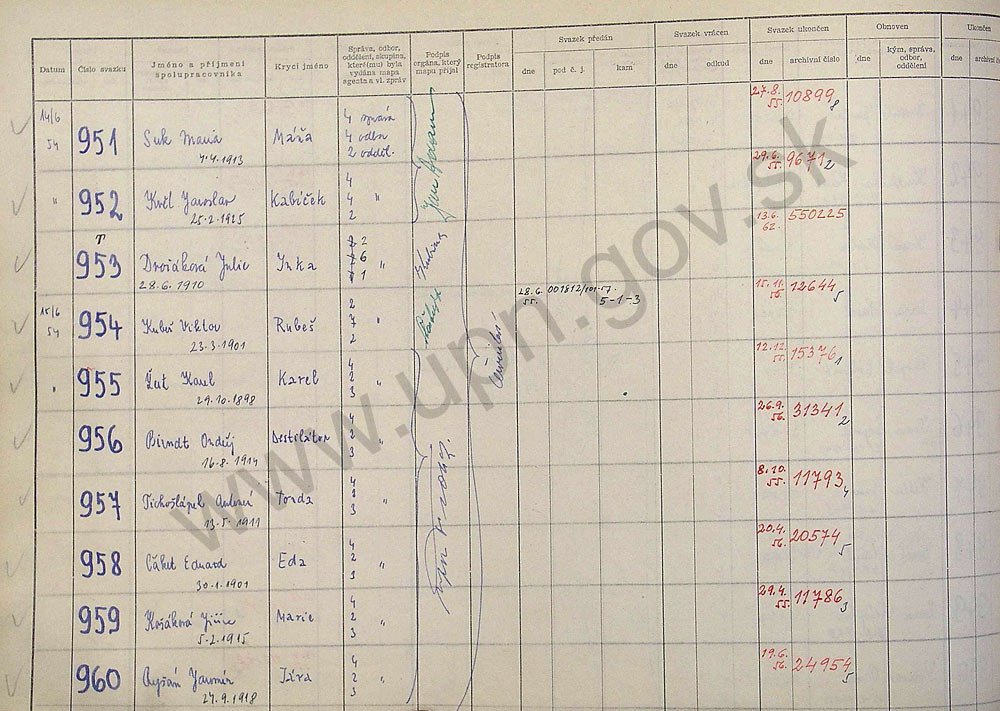 Datum
Číslo svazku
Jméno a příjmení
spolupracovníka
Krycí jméno
Správa, odbor,
oddělení, skupina,
které(mu) byla
vydána mapa
agenta a vl. zpráv
Podpis
orgána, který
mapu přijal
Podpis
registrátora
Svazek předán
dne
pod č. j.
kam
Svazek vrácen
dne
odkud
Svazek ukončen
dne
archivní číslo
Obnoven
dne
kým, správa,
odbor,
oddělení
Ukončen
dne
14/6
54
951
Suk
4.4.1913
Máňa
4 správa
4 odbor
2 odděl.
27.8.
55.
10899
8
"
952
Jaroslav
25-2-1925
Kabíček
4
4 "
2
29.6.
55.
9671
2
T
953
Dvořáková Julie
28.6.1910
Inka
2
6 "
1
13.6.
62.
550225
15/6
54
954
Kubeš Viktor
23-3-1901
Rubeš
2
7 "
2
28.6.
55.
001812/101-57.
5-1-3
15.11.
56.
12644
5
"
955
Karel
29.10.1898
Karel
4
2 "
3
12.12.
55.
15376
1
956
Birndt Ondřej
16-8-1914
Destilátor
4
2 "
3
26.9.
56.
31341
2
957
Antonín
13-5-1911
Tonda
4
2 "
3
8.10.
55.
11793
4
958
Eduard
30-1-1901
Eda
4
2 "
3
20.4.
56.
20574
5
959
5-2-1915
Marie
4
2 "
3
29.4.
55.
11786
3
960
Jaromír
27.9.1918
Jára
4
2 "
3
19.6.
56.
24954
5
www.upn.gov.sk